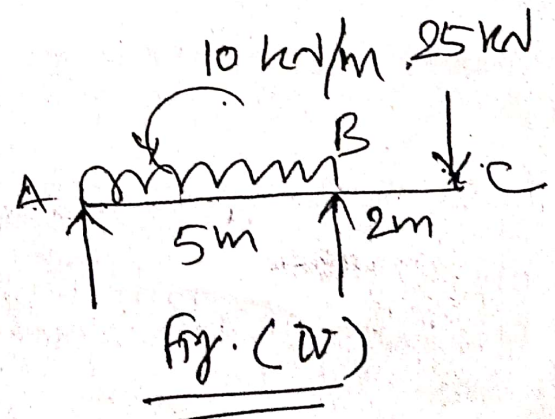 10 kN/m 25 kN
B
A C
5m 2m
Fig. (IV)